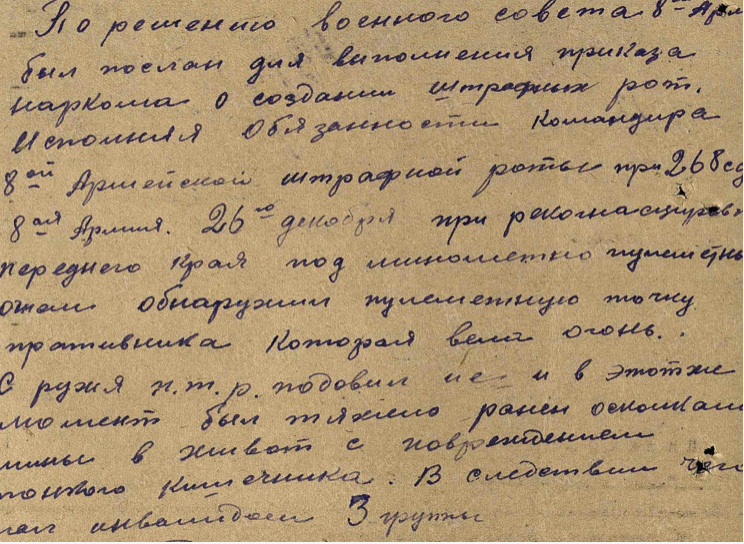 По решению военного совета 8ой Арм
был послан для выполнения приказа
наркома о создании штрафных рот.
Исполняя обязанности командира
8ой Армейской штрафной роты при 268 сд
8ая Армия. 26го декабря при рекогнасциров
переднего края под минометно пулеметны
огнем обнаружил пулеметную точку
противника которая вела огонь..
С ружя п.т.р. подовил ее и в этотже
момент был тяжело ранен осколкам
мины в живот с повреждением
тонкого кишечника. В следствии чего
тал инвалидом 3 группы